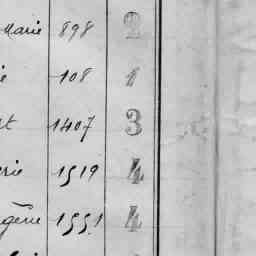 Marie 898 2
ie 108 1
et 1407 3
erie 1519 4
gène 1551 4